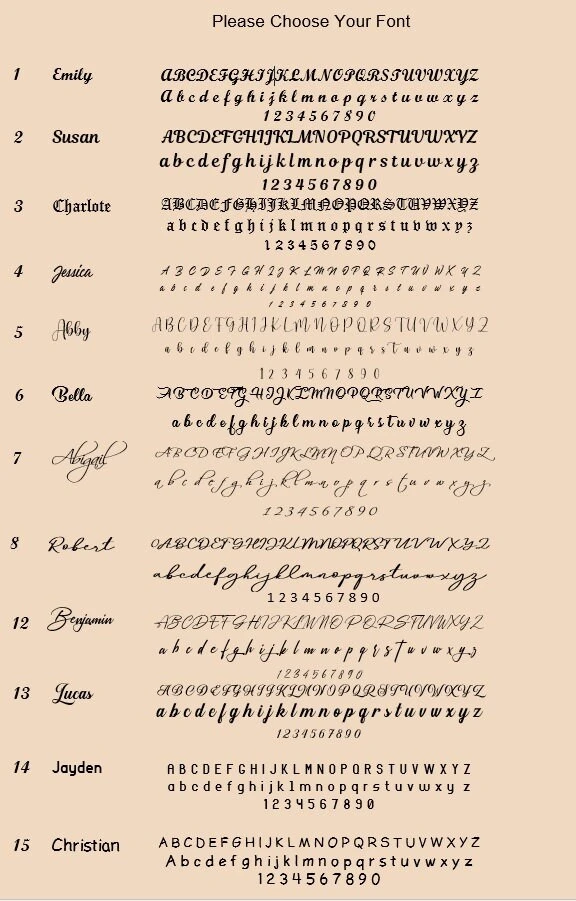 Please Choose Your Font
1 Emily ABCDEFGHIJKLMNOPQRSTUVWXYZ
Abcdefghijklmnopqrstuvwxyz
1234567890
2 Susan ABCDEFGHIJKLMNOPQRSTUVWXYZ
abcdefghijklmnopqrstuvwxyz
1234567890
3 Charlote ABCDEFGHIJKLMNOPQRSTUVWXYZ
abcdefghijklmnopqrstuvwxyz
1234567890
4 Jessica ABCDEFGHIJKLMNOPQRSTUVWXYZ
abcdefghijklmnopqrstuvwxyz
1234567890
5 Abby ABCDEFGHIJKLMNOPQRSTUVWXYZ
abcdefghijklmnopqrstuvwxyz
1234567890
6 Bella ABCDEFGHIJKLMNOPQRSTUVWXYZ
abcdefghijklmnopqrstuvwxyz
7 Abigail ABCDEFGHIJKLMNOPQRSTUVWXYZ
abcdefghijklmnopqrstuvwxyz
1234567890
8 Robert ABCDEFGHIJKLMNOPQRSTUVWXYZ
abcdefghijklmnopqrstuvwxyz
1234567890
12 Benjamin ABCDEFGHIJKLMNOPQRSTUVWXYZ
abcdefghijklmnopqrstuvwxyz
1234567890
13 Lucas ABCDEFGHIJKLMNOPQRSTUVWXYZ
abcdefghijklmnopqrstuvwxyz
1234567890
14 Jayden ABCDEFGHIJKLMNOPQRSTUVWXYZ
abcdefghijklmnopqrstuvwxyz
1234567890
15 Christian ABCDEFGHIJKLMNOPQRSTUVWXYZ
Abcdefghijklmnopqrstuvwxyz
1234567890